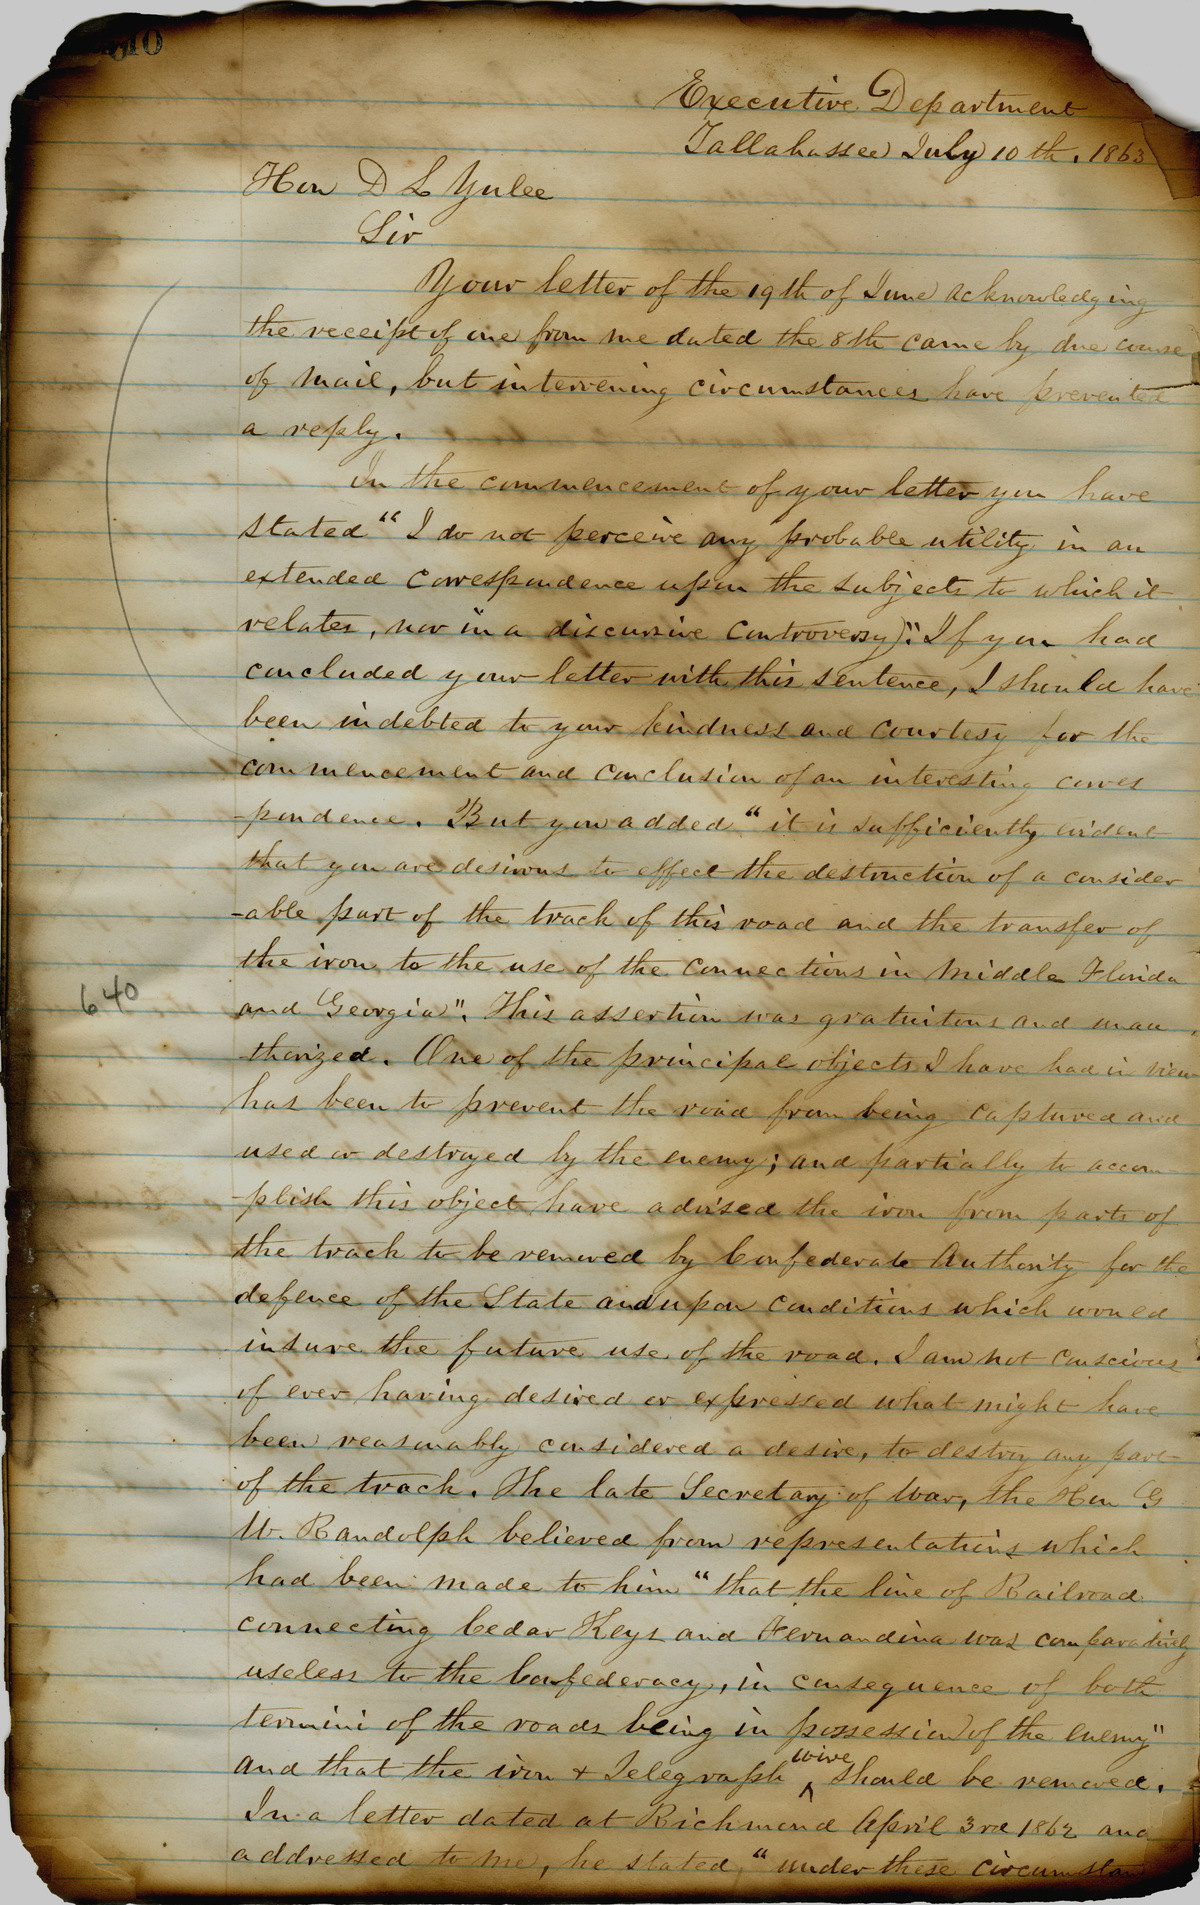 Executive Department
Tallahassee July 10th, 1863
Hon D L Yulee
Sir
Your letter of the 19th of June acknowledging
the receipt of one from me dated the 8th came by due course
of mail, but intervening circumstances have prevented
a reply.
In the commencement of your letter you have
stated “I do not perceive any probable utility in an
extended correspondence upon the subjects to which it
relates, nor in a discursive controversy". If you had
concluded your letter with this sentence, I should have
been indebted to your kindness and courtesy for the
commencement and conclusion of an interesting corres
-pondence. But you added “it is sufficiently evident
that you are desirous to effect the destruction of a consider
-able part of the track of this road and the transfer of
the iron to the use of the connections in Middle Florida
and Georgia". This assertion was gratuitous and unau
-thorized. One of the principal objects I have had in view
has been to prevent the road from being captured and
used or destroyed by the enemy; and partially to accom
-plish this object have advised the iron from parts of
the track to be removed by Confederate Authority for the
defence of the State and upon conditions which would
insure the future use of the road. I am not conscious
of ever having desired or expressed what might have
been reasonably considered a desire, to destroy any part
of the track. The late Secretary of War, the Hon G
W. Randolph believed from representations which
had been made to him “that the line of Railroad
640
connecting Cedar Keys and Fernandina was comparatively
useless to the Confederacy, in consequence of both
termini of the roads being in possession of the enemy"
and that the iron & Telegraph wire should be removed.
In a letter dated at Richmond April 3rd 1862 and
addressed to me, he stated, “under these